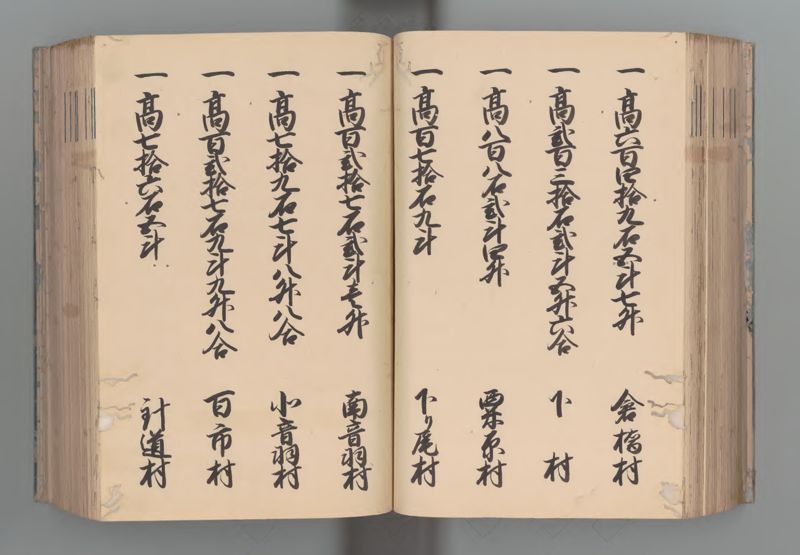 一 高六百四拾九石五斗七升 倉橋村
一 高弐百三拾石弐斗五升六合 下村
一 高八百八石弐斗四升 粟原村
一 高百七拾石九斗 下り尾村
一 高百弐拾七石弐斗壱升 南音羽村
一 高七拾九石七斗八升八合 北音羽村
一 高百弐拾七石九斗九升八合 百市村
一 高七拾六石五斗 針道村